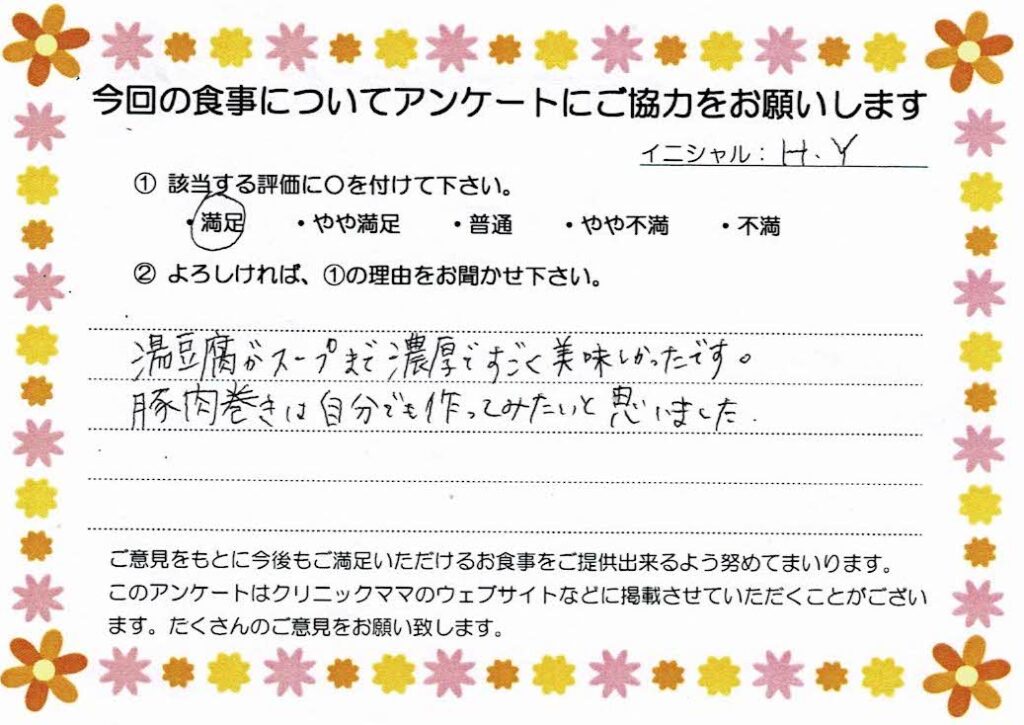 今回の食事についてアンケートにご協力をお願いします
イニシャル：H.Y
① 該当する評価に〇を付けて下さい。
・満足 ・やや満足 ・普通 ・やや不満 ・不満
② よろしければ、①の理由をお聞かせ下さい。
湯豆腐がスープまで濃厚ですごく美味しかったです。
豚肉巻きは自分でも作ってみたいと思いました.
ご意見をもとに今後もご満足いただけるお食事をご提供出来るよう努めてまいります。
このアンケートはクリニックママのウェブサイトなどに掲載させていただくことがござい
ます。たくさんのご意見をお願い致します。